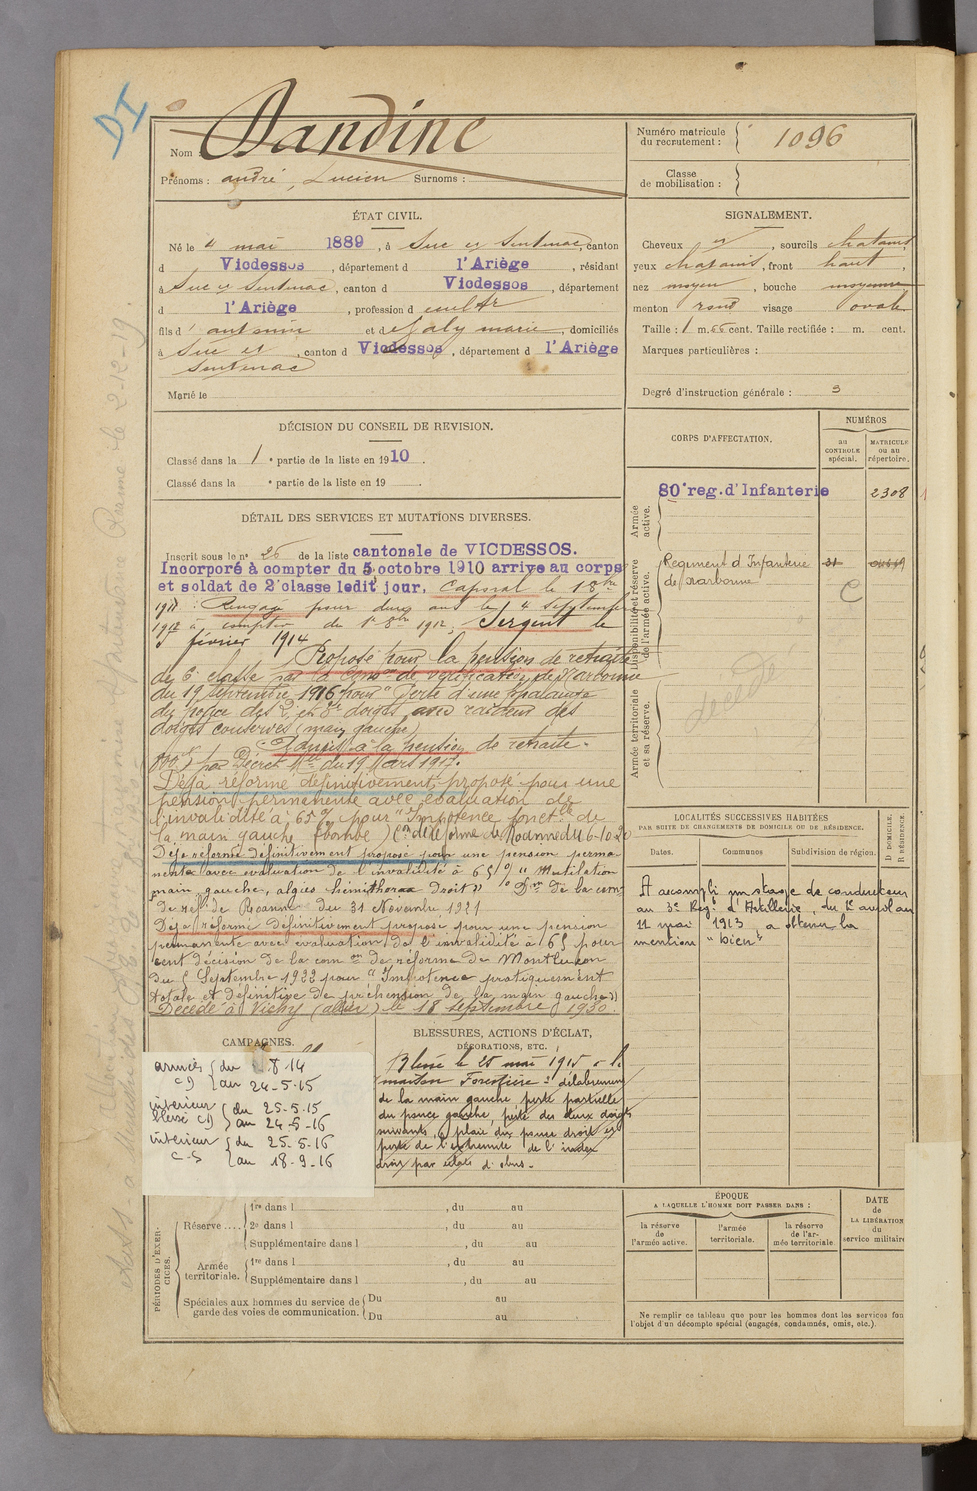 DI
Nom : Dandine
Prénoms : andré, Lucien Surnoms :
Numéro matricule du recrutement : 1096
Classe de mobilisation :
ÉTAT CIVIL.
Né le 4 mai 1889, à Suc et Sentenac, canton
d Vicdessos, département d l'Ariège, résidant
à Suc et Sentenac, canton d Vicdessos, département
d l'Ariège, profession d cultr
fils d' antonin et de Galy marie, domiciliés
à Suc et Sentenac, canton d Vicdessos, département d l'Ariège
Marié le
SIGNALEMENT.
Cheveux et, sourcils chatains,
yeux chatains, front haut,
nez moyen, bouche moyenne
menton rond visage ovale
Taille : 1 m. 66 cent. Taille rectifiée : m. cent.
Marques particulières :
Degré d'instruction générale : 3
DÉCISION DU CONSEIL DE REVISION.
Classé dans la 1e partie de la liste en 1910.
Classé dans la e partie de la liste en 19 .
CORPS D'AFFECTATION.
NUMÉROS
au CONTROLE spécial.
MATRICULE ou au répertoire.
Armée active.
80e reg. d'Infanterie 2308
Disponibilité et réserve de l'armée active.
Regiment d'Infanterie de Narbonne 31
C
Armée territoriale et sa réserve.
décédé
DÉTAIL DES SERVICES ET MUTATIONS DIVERSES.
Inscrit sous le no 26 de la liste cantonale de VICDESSOS.
Incorporé à compter du 5 octobre 1910 arrivé au corps
et soldat de 2e classe ledit jour, Caporal le 1 8bre
1911 : Rengagé pour deux ans le 4 septembre
1912 à compter du 1er 8bre 1912. Sergent le
février 1914
Proposé pour la pension de retraite
de 6e classe par la Comon de vérification de Narbonne
du 19 septembre 1916 pour "Perte d'une phalange
du pouce des 2e et 3e doigts avec raideur des
doigts conservés (main gauche)
Admis à la pension de retraite.
par Décret Mel du 19 Mars 1917.
Déjà réformé définitivement, proposé pour une
pension permanente avec évaluation de
l'invalidité à 65% pour "Impotence fonctelle de
la main gauche (bombe) Con de réforme de Roanne du 6-10-20
Déjà réformé définitivement proposé pour une pension perma-
nente avec évaluation de l'invalidité à 65% "Mutilation
main gauche, algies hémithorax Droit" Don de la com
de ref. de Roanne du 31 Novembre 1921
Déjà réformé définitivement proposé pour une pension
permanente avec évaluation de l'invalidité à 65 pour
cent décision de la comon de réforme de Montluçon
du 5 Septembre 1922 pour "Impotence pratiquement
totale et définitive de préhension de la main gauche"
Décédé à Vichy (allier) le 18 septembre 1930.
LOCALITÉS SUCCESSIVES HABITÉES
PAR SUITE DE CHANGEMENTS DE DOMICILE OU DE RÉSIDENCE.
Dates.
Communes
Subdivision de région.
D DOMICILE.
R RÉSIDENCE.
A accompli un stage de conducteur
au 3e Regt d'Artillerie, du 1er avril au
11 mai 1913, a obtenu la
mention "bien"
CAMPAGNES.
armées c) du 8 14
au 24-5-15
intérieur blessé c) du 25-5-15
au 24-5-16
intérieur c-s du 25-5-16
au 18-9-16
BLESSURES, ACTIONS D'ÉCLAT,
DÉCORATIONS, ETC.
Blessé le 25 mai 1915 à la
maison Forestière : délabrement
de la main gauche perte partielle
du pouce gauche, perte des deux doigts
suivants, plaie du pouce droit et
perte de l'extrémité de l'index
droit par éclats d'obus.
PÉRIODES D'EXERCICES.
Réserve .... 1re dans l , du au
2e dans l , du au
Supplémentaire dans l , du au
Armée territoriale. 1re dans l , du au
Supplémentaire dans l , du au
Spéciales aux hommes du service de garde des voies de communication. Du au
Du au
ÉPOQUE
A LAQUELLE L'HOMME DOIT PASSER DANS :
la réserve de l'armée active.
l'armée territoriale.
la réserve de l'armée territoriale.
DATE
de
LA LIBÉRATION
du
service militaire
Ne remplir ce tableau que pour les hommes dont les services font
l'objet d'un décompte spécial (engagés, condamnés, omis, etc.).